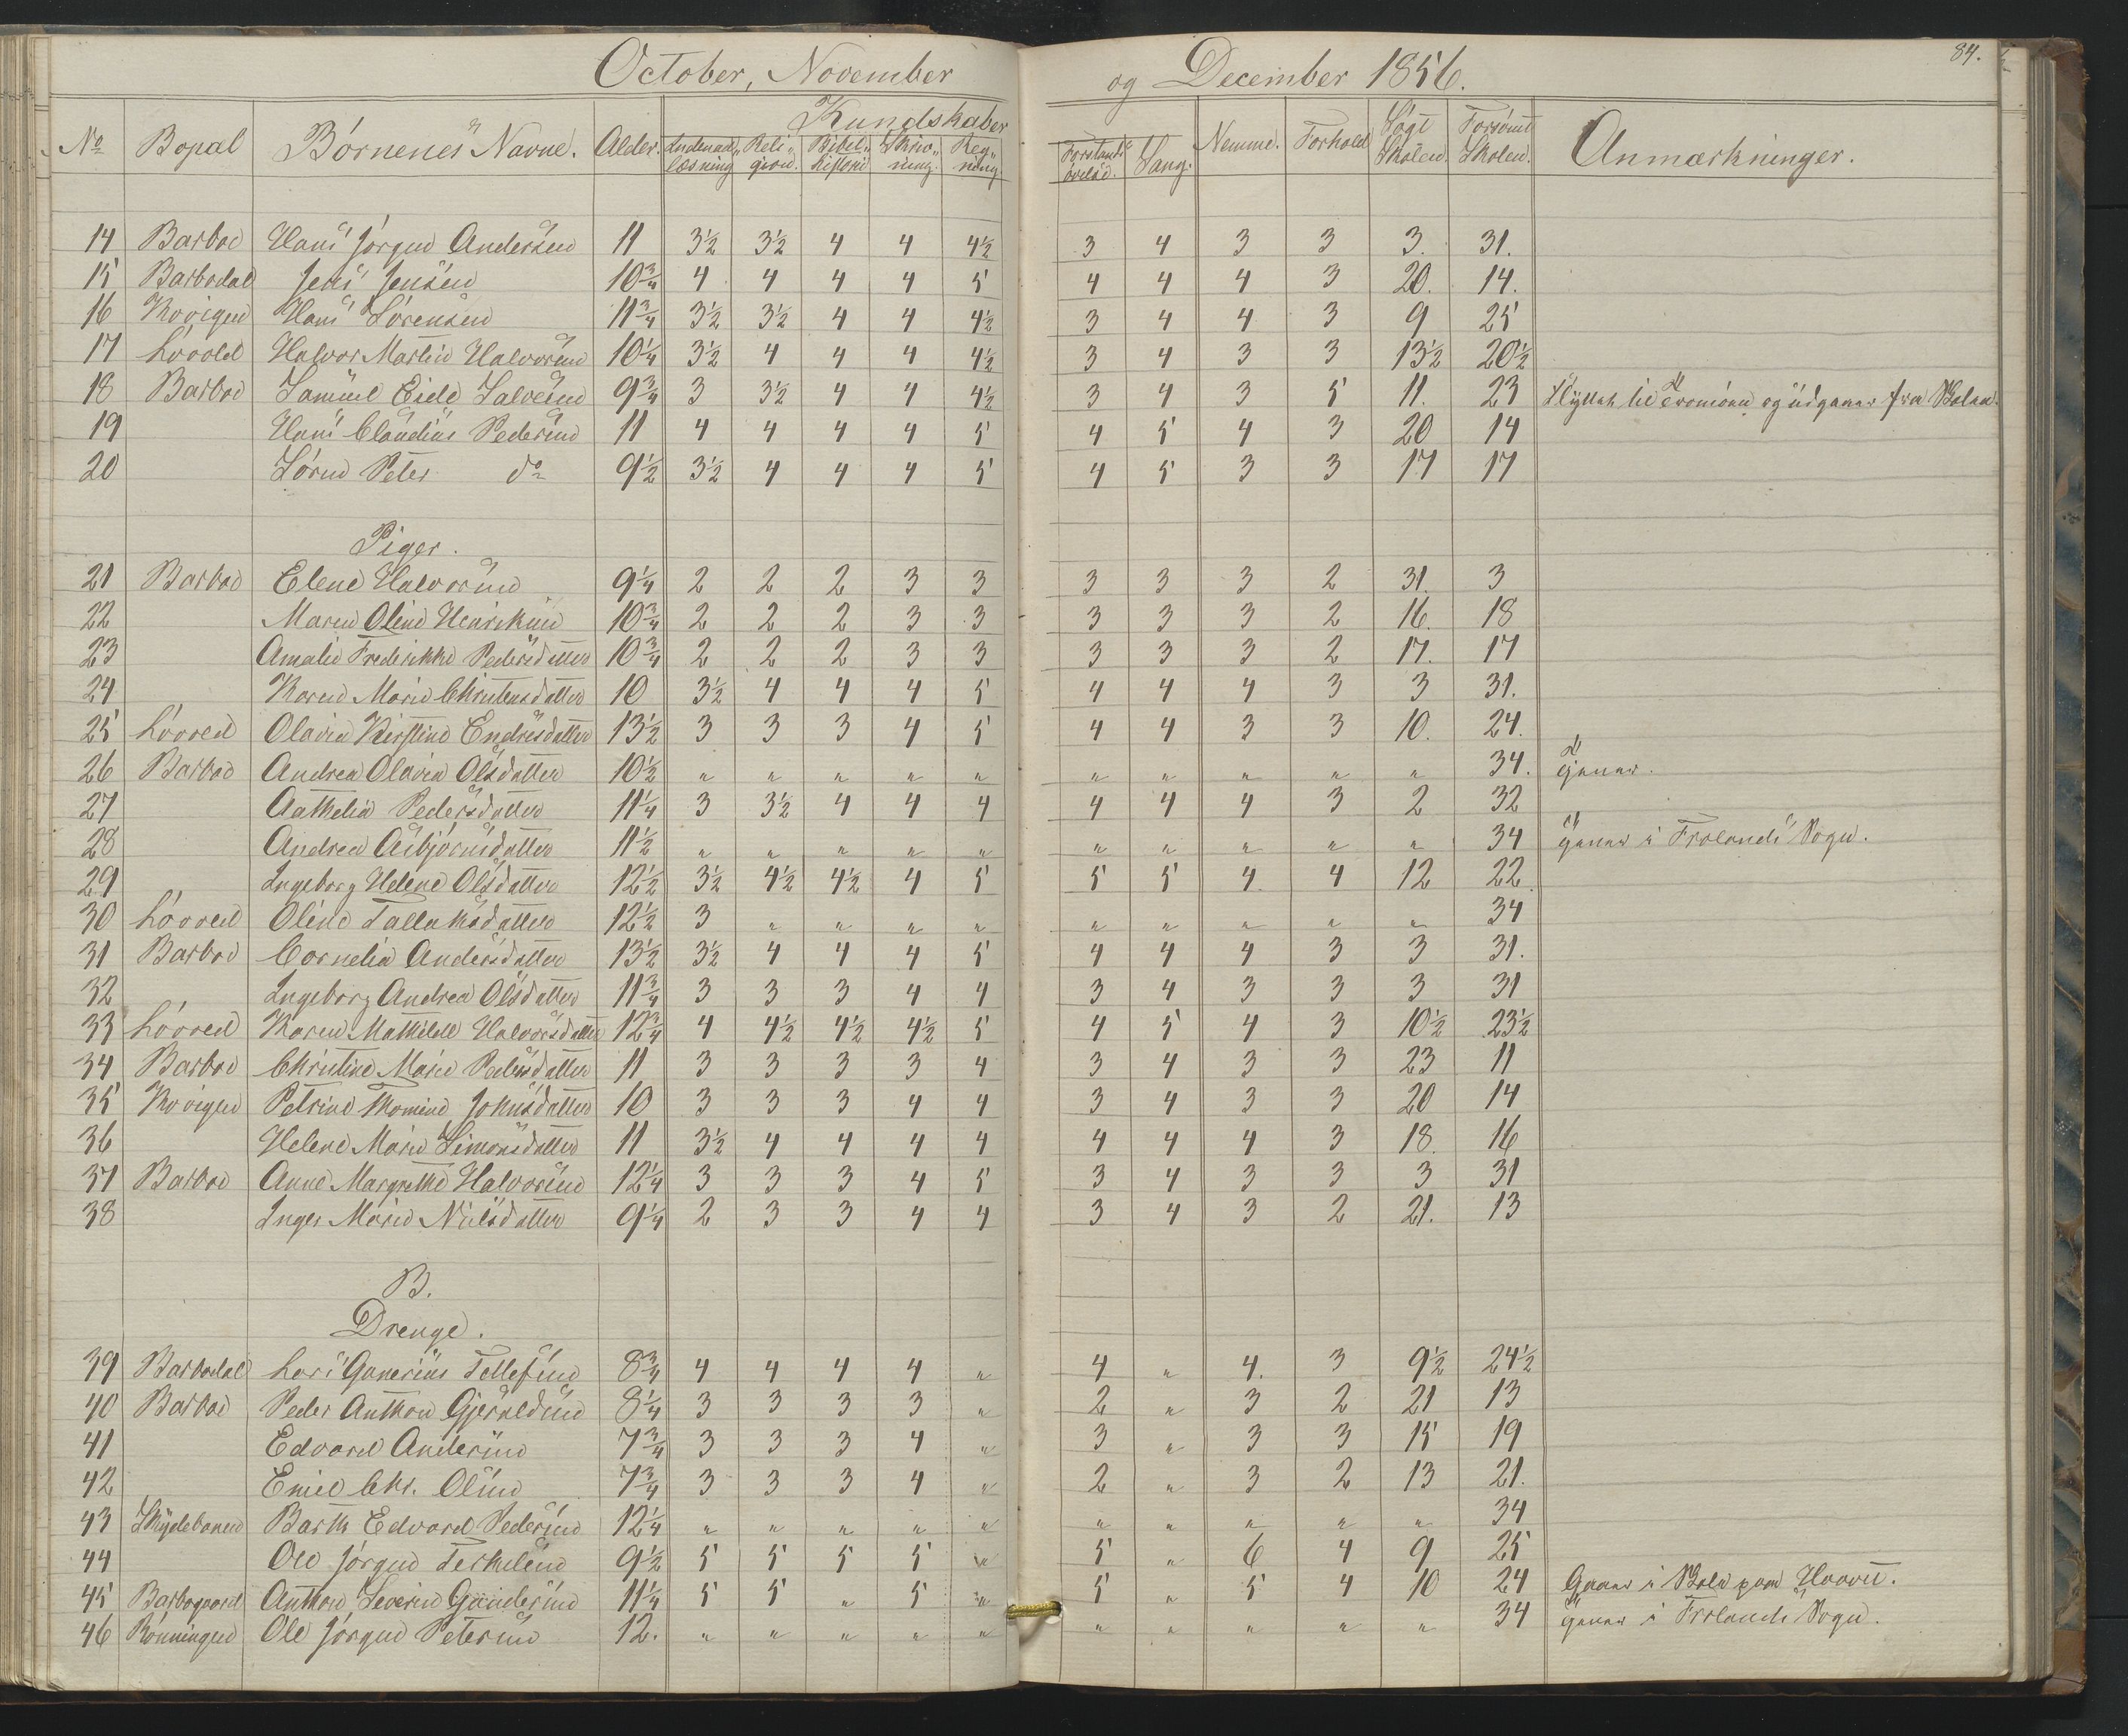 October, November og December 1856. 84.
No Bopal Börnenes Navne. Alder. Kundskaber Nemme. Forhold Sögt Skolen. Forsömt Skolen. Anmærkninger.
Indenadlæsning Religion. Bibelhistorie Skrivning. Regning Forstandsövelse. Sang.
14 Barboe Hans Jörgen Andersen 11 3½ 3½ 4 4 4½ 3 4 3 3 3. 31.
15 Barbodal Jens Jensen 10¾ 4 4 4 4 5 4 4 4 3 20. 14.
16 Kovigen Hans Sörensen 11¾ 3½ 3½ 4 4 4½ 3 4 4 3 9 25
17 Lövold Halvor Martin Halvorsen 10¼ 3½ 4 4 4 4½ 3 4 3 3 13½ 20½
18 Barboe Samuel Eide Salvesen 9¾ 3 3½ 4 4 4½ 3 4 3 5 11. 23 Flyttet til Tromöen og udgaaer fra Skolen.
19 Hans Claudius Pedersen 11 4 4 4 4 5 4 5 4 3 20 14
20 Sören Peter do 9½ 3½ 4 4 4 5 4 5 3 3 17 17
Piger.
21 Barboe Elene Halvorsen 9¼ 2 2 2 3 3 3 3 3 2 31. 3
22 Maren Oline Henriksen 10¾ 2 2 2 3 3 3 3 3 2 16. 18
23 Amalie Frederikke Pedersdatter 10¾ 2 2 2 3 3 3 3 3 2 17. 17
24 Karen Marie Christensdatter 10 3½ 4 4 4 5 4 4 4 3 3 31.
25 Löved Olavia Kirstine Endresdatter 13½ 3 3 3 4 5 4 4 3 3 10. 24.
26 Barboe Andrea Olavia Olsdatter 10½ " " " " " " " " " " 34. Tjener.
27 Aathelia Pedersdatter 11¼ 3 3½ 4 4 4 4 4 4 3 2 32
28 Andrea Asbjörnsdatter 11½ " " " " " " " " " " 34 Tjener i Frolands Sogn.
29 Ingeborg Helene Olsdatter 12½ 3½ 4½ 4½ 4 5 5 5 4. 4 12 22.
30 Löved Oline Tallaksdatter 12½ 3 " " " " " " " " " 34
31 Barboe Cornelia Andersdatter 13½ 3½ 4 4 4 5 4 4 4 3 3 31.
32 Ingeborg Andrea Olsdatter 11¾ 3 3 3 4 4 3 4 3 3 3 31
33 Löved Karen Mathilde Halvorsdatter 12¾ 4 4½ 4½ 4½ 5 4 5 4 3 10½ 23½
34 Barboe Christine Marie Pedersdatter 11 3 3 3 3 4 3 4 3 3 23 11
35 Kovigen Petrine Thomine Johnsdatter 10 3 3 3 4 4 3 4 3 3 20 14
36 Helene Marie Simonsdatter 11 3½ 4 4 4 4 4 4 4 3 18. 16
37 Barboe Anne Margrethe Halvorsen 12¼ 3 3 3 4 5 3 4 3 3 3 31
38 Inger Marie Nielsdatter 9¼ 2 3 3 4 4 3 4 3 2 21. 13
B.
Drenge.
39 Barbodal Lars Gunerius Tellefsen 8¾ 4 4 4 4 " 4 " 4. 3 9½ 24½
40 Barboe Peder Anthon Gjeruldsen 8¼ 3 3 3 3 " 2 " 3 2 21 13
41 Edvard Andersen 7¾ 3 3 3 4 " 3 " 3 3 15 19
42 Emil Chr. Olsen 7¾ 3 3 3 4 " 2 " 3 2 13 21.
43 Skydebanen Barth Edvard Pedersen 12¼ " " " " " " " " " " 34
44 Ole Jörgen Terkelsen 9½ 5 5 5 5 " 5 " 6 4 9 25
45 Barbogaard Anthon Severin Gundersen 11¼ 5 5 " 5 " 5 " 5 4 10 24 Gaaer i Skole paa Haavet.
46 Rönningen Ole Jörgen Petersen 12. " " " " " " " " " " 34 Tjener i Frolands Sogn.